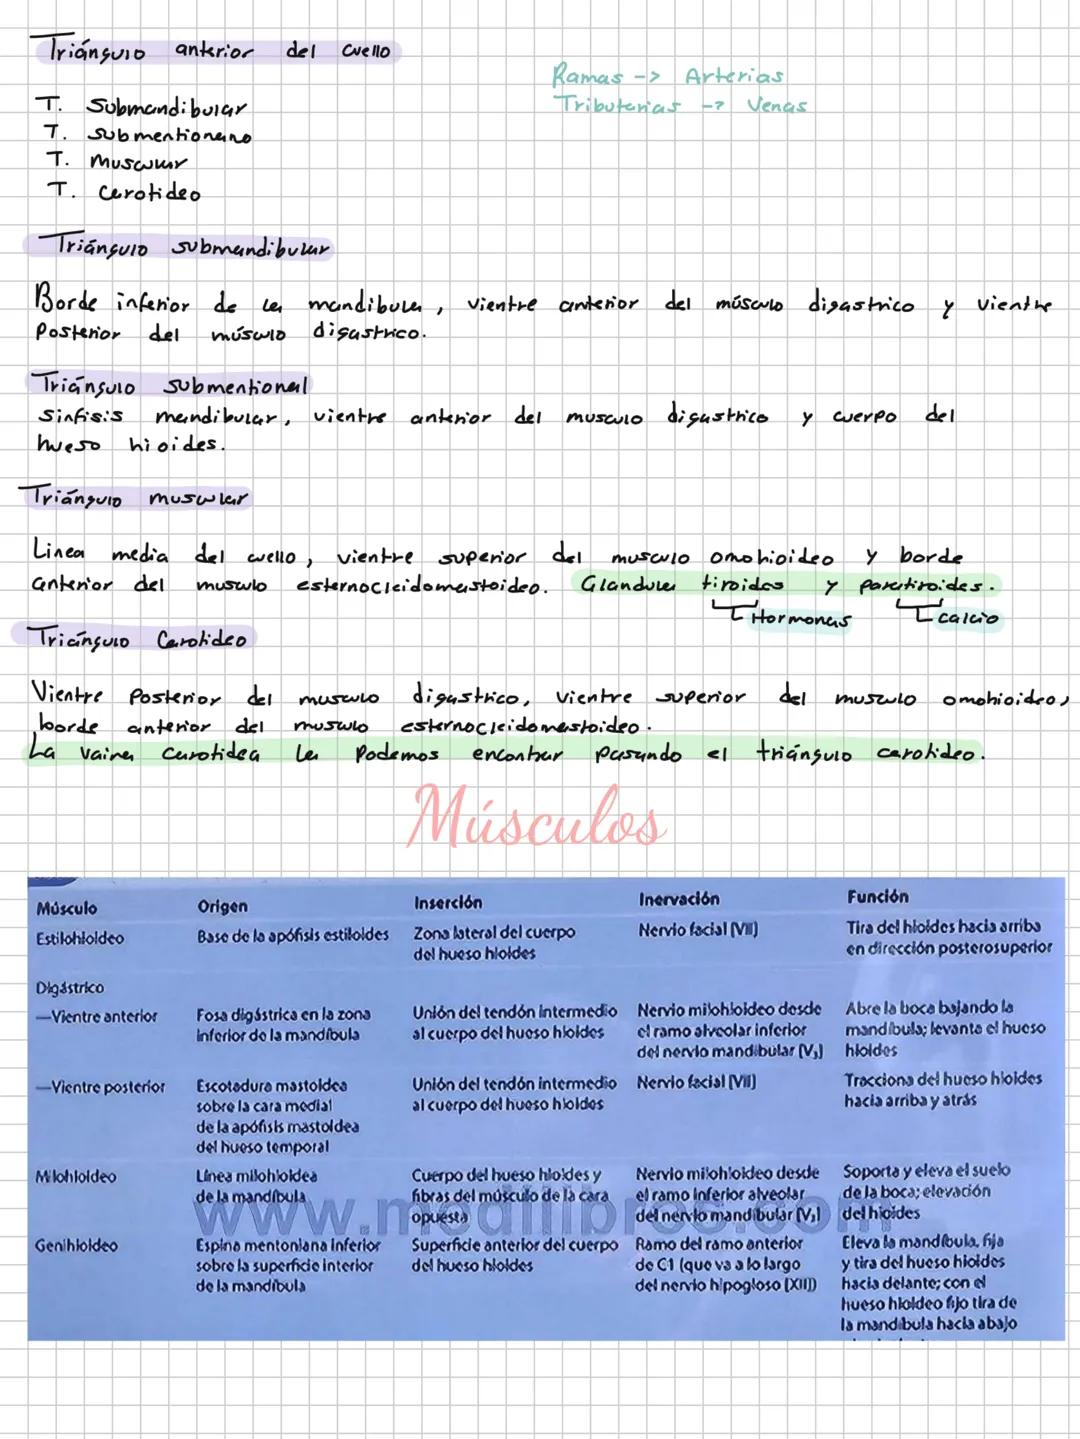 Triángulo anterior del cuello
Ramas -> Arterias
Tributarias -> Venas
T. Submandibular
T. submentoneano
T. muscular
T. Carotideo
Triángulo submandibular
Borde inferior de la mandibula, vientre anterior del músculo digastrico y vientre
Posterior del músculo digastrico.
Triángulo submentional
sinfisis mandibular, vientre anterior del musculo digastrico y cuerpo del
hueso hioides.
Triángulo muscular
Linea media del cuello, vientre superior del musculo omohioideo y borde
anterior del musculo esternocleidomastoideo. Glandula tiroides y paratiroides.
Hormonas
calcio
Triángulo Carotideo
Vientre Posterior del musculo digastrico, vientre superior del musculo omohioideo,
borde anterior del musculo esternocleidomastoideo.
La vaina carotidea la Podemos encontrar pasando el triángulo carotideo.
Músculos
Músculo Origen Inserción Inervación Función
Estilohioideo Base de la apófisis estiloides Zona lateral del cuerpo Nervio facial [VII] Tira del hioides hacia arriba
del hueso hioides en dirección posterosuperior
Digástrico
—Vientre anterior Fosa digástrica en la zona Unión del tendón intermedio Nervio milohioideo desde Abre la boca bajando la
inferior de la mandíbula al cuerpo del hueso hioides el ramo alveolar inferior mandíbula; levanta el hueso
del nervio mandibular [V₃] hioides
—Vientre posterior Escotadura mastoidea Unión del tendón intermedio Nervio facial [VII] Tracciona del hueso hioides
sobre la cara medial al cuerpo del hueso hioides hacia arriba y atrás
de la apófisis mastoidea
del hueso temporal
Milohioideo Línea milohioidea Cuerpo del hueso hioides y Nervio milohioideo desde Soporta y eleva el suelo
de la mandíbula fibras del músculo de la cara el ramo inferior alveolar de la boca; elevación
opuesta del nervio mandibular [V₃] del hioides
www.medilibros.com
Genihioideo Espina mentoniana inferior Superficie anterior del cuerpo Ramo del ramo anterior Eleva la mandíbula, fija
sobre la superficie interior del hueso hioides de C1 (que va a lo largo y tira del hueso hioides
de la mandíbula del nervio hipogloso [XII]) hacia delante; con el
hueso hioideo fijo tira de
la mandíbula hacia abajo